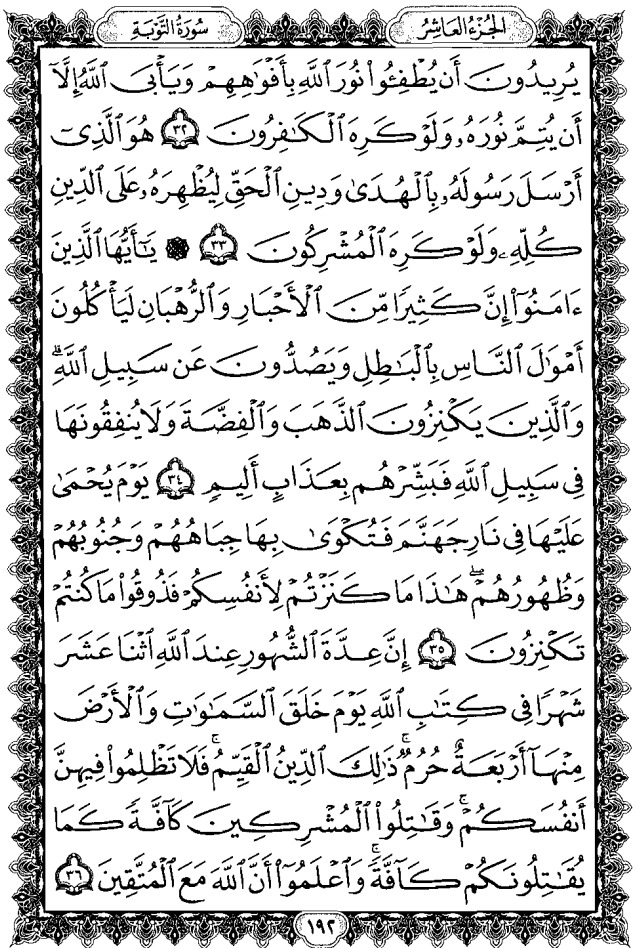 الجزء العاشر
سورة التوبة
يُرِيدُونَ أَن يُطْفِـُٔوا۟ نُورَ ٱللَّهِ بِأَفْوَٰهِهِمْ وَيَأْبَى ٱللَّهُ إِلَّآ
أَن يُتِمَّ نُورَهُۥ وَلَوْ كَرِهَ ٱلْكَـٰفِرُونَ ٣٢ هُوَ ٱلَّذِىٓ
أَرْسَلَ رَسُولَهُۥ بِٱلْهُدَىٰ وَدِينِ ٱلْحَقِّ لِيُظْهِرَهُۥ عَلَى ٱلدِّينِ
كُلِّهِۦ وَلَوْ كَرِهَ ٱلْمُشْرِكُونَ ٣٣ ۞ يَـٰٓأَيُّهَا ٱلَّذِينَ
ءَامَنُوٓا۟ إِنَّ كَثِيرًا مِّنَ ٱلْأَحْبَارِ وَٱلرُّهْبَانِ لَيَأْكُلُونَ
أَمْوَٰلَ ٱلنَّاسِ بِٱلْبَـٰطِلِ وَيَصُدُّونَ عَن سَبِيلِ ٱللَّهِ ۗ
وَٱلَّذِينَ يَكْنِزُونَ ٱلذَّهَبَ وَٱلْفِضَّةَ وَلَا يُنفِقُونَهَا
فِى سَبِيلِ ٱللَّهِ فَبَشِّرْهُم بِعَذَابٍ أَلِيمٍ ٣٤ يَوْمَ يُحْمَىٰ
عَلَيْهَا فِى نَارِ جَهَنَّمَ فَتُكْوَىٰ بِهَا جِبَاهُهُمْ وَجُنُوبُهُمْ
وَظُهُورُهُمْ ۖ هَـٰذَا مَا كَنَزْتُمْ لِأَنفُسِكُمْ فَذُوقُوا۟ مَا كُنتُمْ
تَكْنِزُونَ ٣٥ إِنَّ عِدَّةَ ٱلشُّهُورِ عِندَ ٱللَّهِ ٱثْنَا عَشَرَ
شَهْرًا فِى كِتَـٰبِ ٱللَّهِ يَوْمَ خَلَقَ ٱلسَّمَـٰوَٰتِ وَٱلْأَرْضَ
مِنْهَآ أَرْبَعَةٌ حُرُمٌ ۚ ذَٰلِكَ ٱلدِّينُ ٱلْقَيِّمُ ۚ فَلَا تَظْلِمُوا۟ فِيهِنَّ
أَنفُسَكُمْ ۚ وَقَـٰتِلُوا۟ ٱلْمُشْرِكِينَ كَآفَّةً كَمَا
يُقَـٰتِلُونَكُمْ كَآفَّةً ۚ وَٱعْلَمُوٓا۟ أَنَّ ٱللَّهَ مَعَ ٱلْمُتَّقِينَ ٣٦
١٩٢